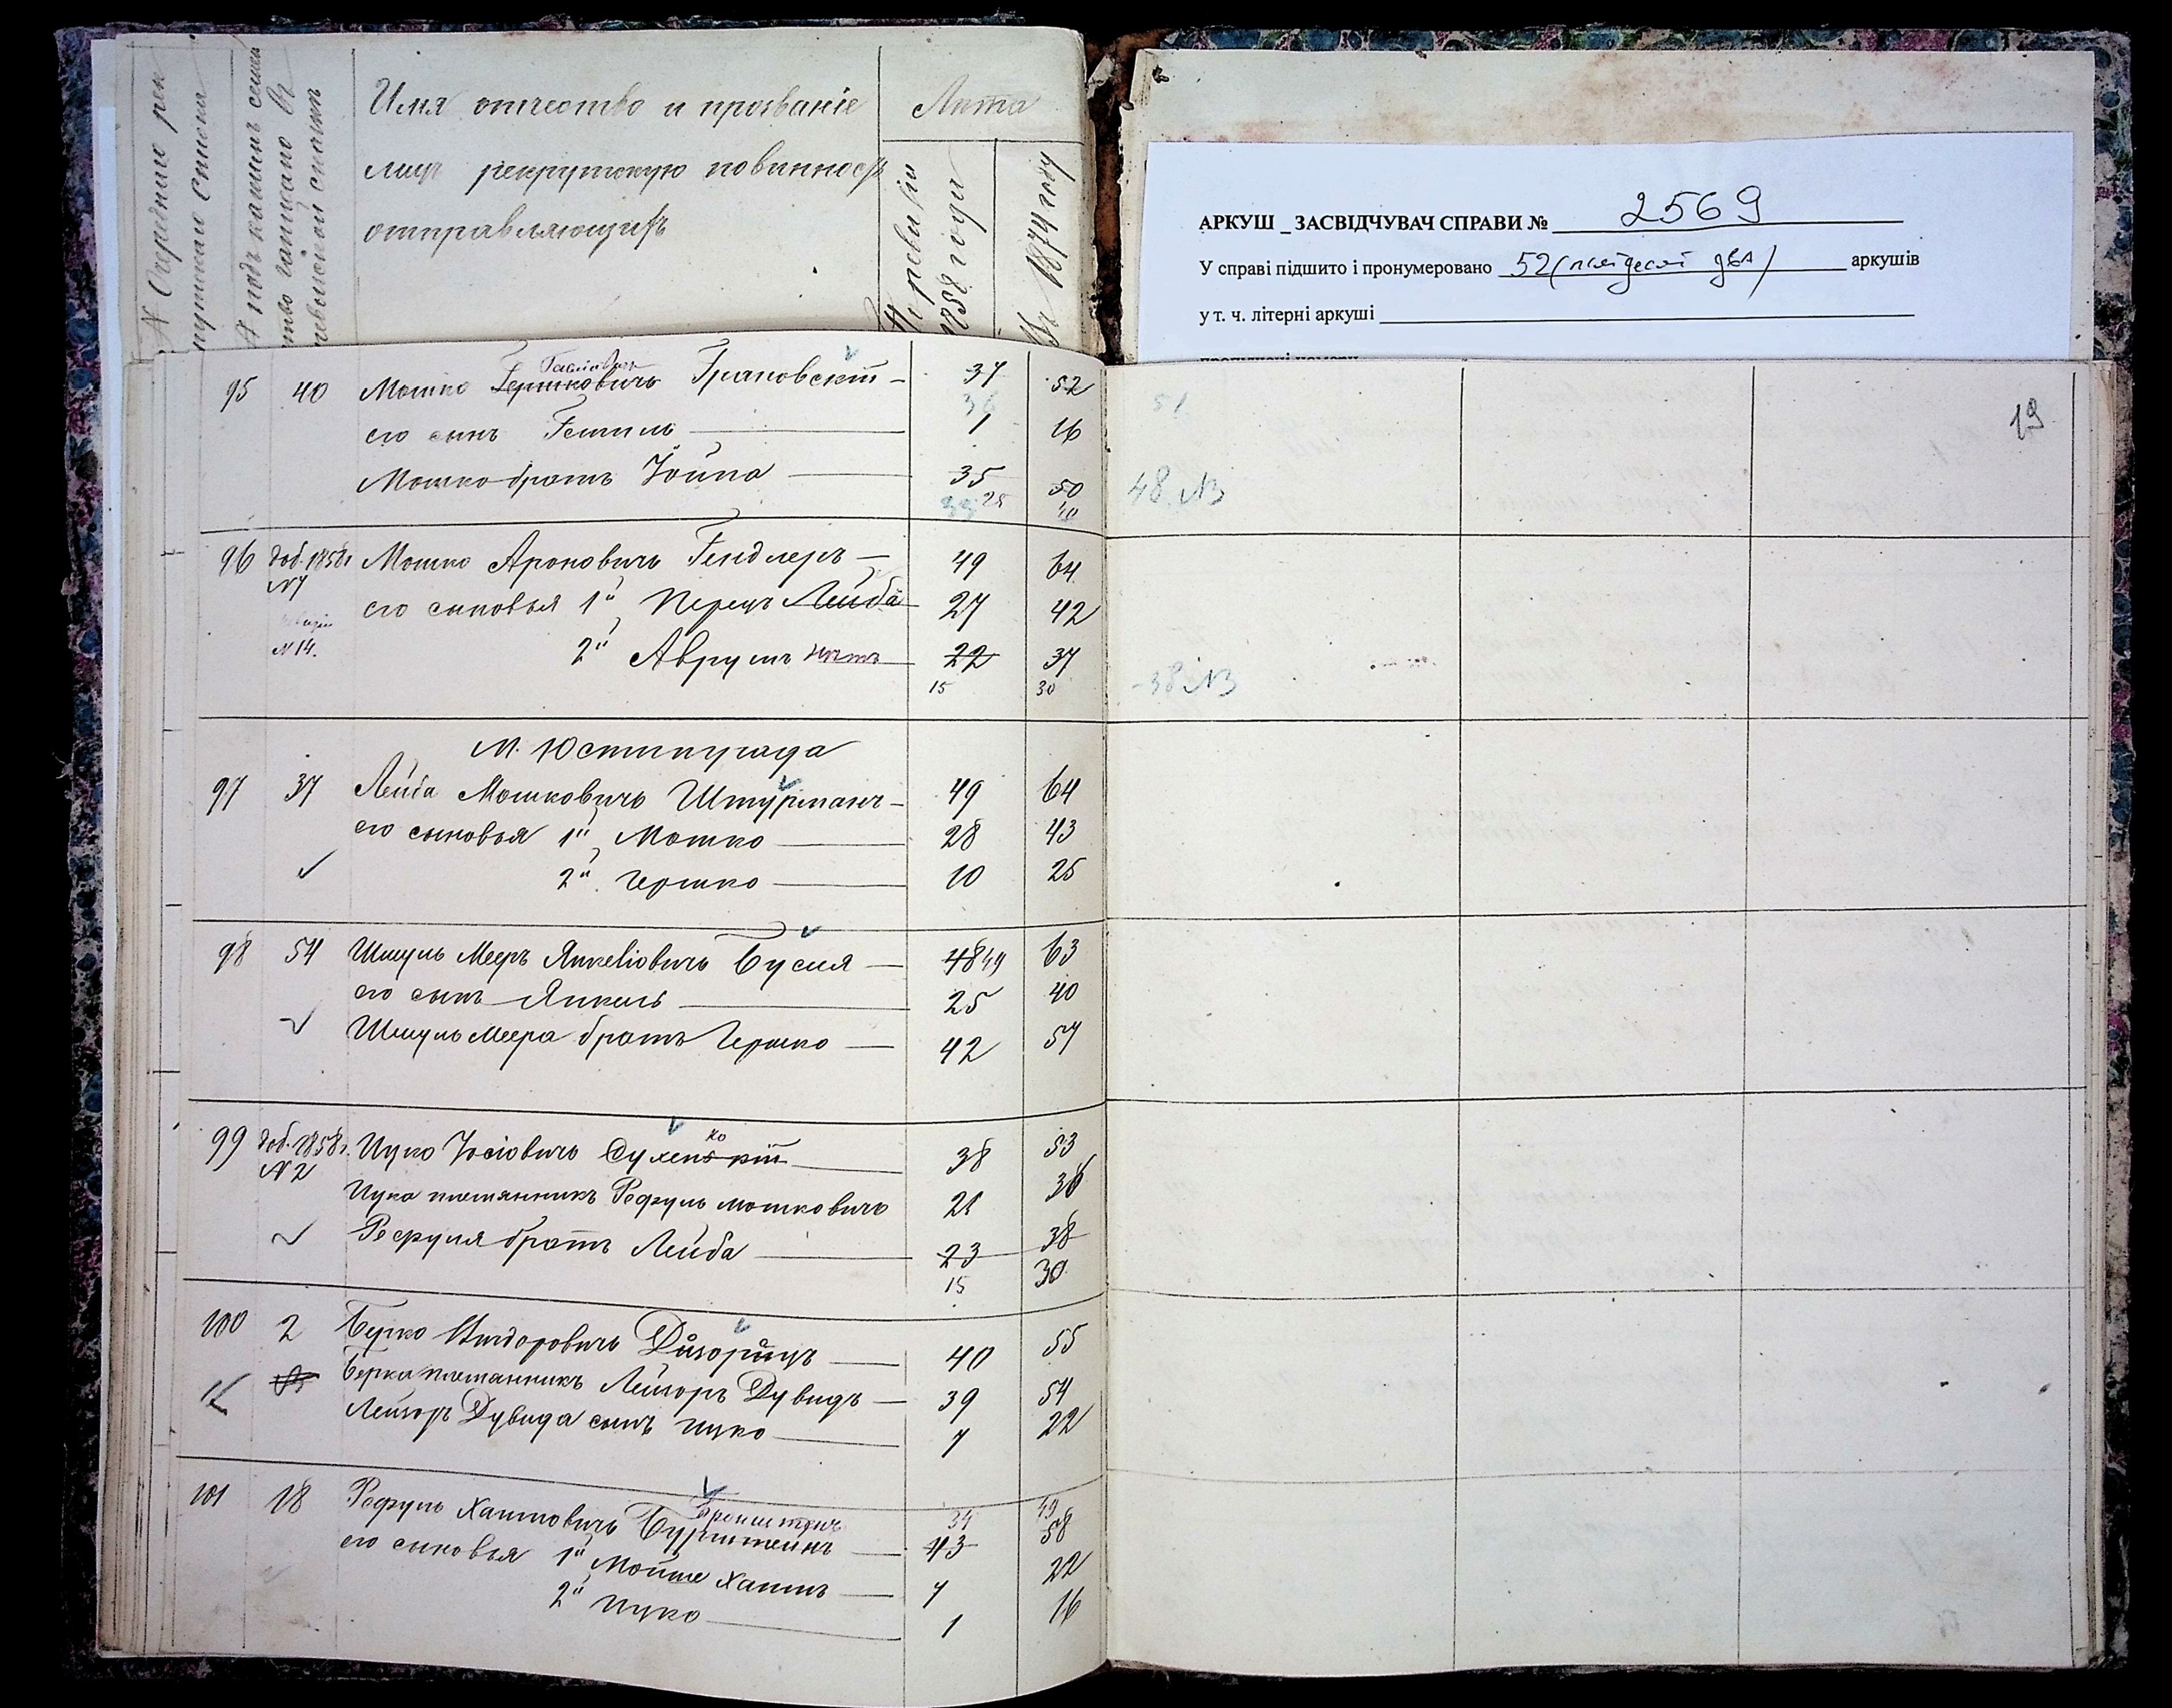 № Очередные рек
рутскаго списка
А подъ какимъ семей
ство записано въ
ревизской сказкѣ
Имя отчество и прозваніе
лицъ рекрутскую повинность
отправляющихъ
Лѣта
По ревизіи
1858 года
Въ 1874 году
АРКУШ _ ЗАСВІДЧУВАЧ СПРАВИ № 2569
У справі підшито і пронумеровано 52 (пятдесят два) аркушів
у т. ч. літерні аркуші
пропущені номери
19
95 40 Мошко Гершковичъ Грановскій 37 52
36 51
его сынъ 1 16
Мошко братъ Іойна 35 50
33 25 40 48 №3
96 доб. 1858г Мошко Ароновичъ Гендлеръ 49 64
№7
его сыновья 1й Перецъ Лейба 27 42
№ 14. 2й Аврумъ нѣтъ 22 37
15 30 38 №3
М. Юстинграда
97 37 Лейба Мошковичъ Штурманъ 49 64
его сыновья 1й Мошко 28 43
2й Гершко 10 25
98 54 Шмуль Мееръ Янкеліовичъ Бусел 48 49 63
его сынъ Янкель 25 40
Шмуль Меера братъ Гершко 42 57
99 доб. 1858г. Ицко Іосіовичъ 38 53
№2 ко
Ицка племянникъ Рефуль Мошковичъ 21 36
Рефуля братъ Лейба 23 38
15 30
100 2 Берко 40 55
Берка племянникъ Лейзоръ Дувидъ 39 54
Лейзоръ Дувида сынъ Ицко 7 22
Бронштейнъ 34 49
101 18 Рефуль Хаимовичъ Бурштейнъ 43 58
его сыновья 1й Мойше Хаимъ 7 22
2й Ицко 1 16